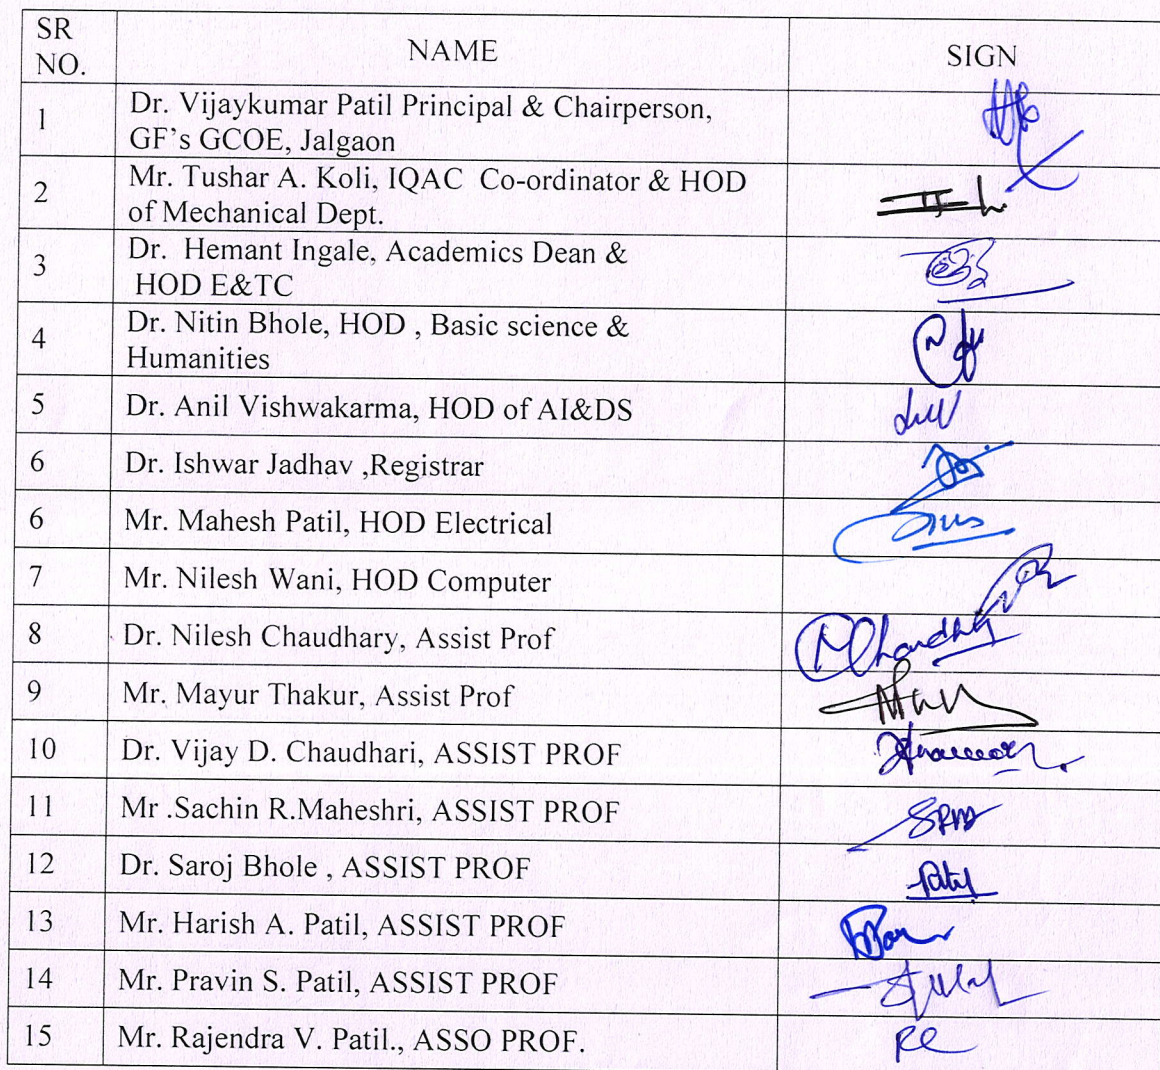 SR
NO.
NAME
SIGN
1
Dr. Vijaykumar Patil Principal & Chairperson,
GF's GCOE, Jalgaon
2
Mr. Tushar A. Koli, IQAC Co-ordinator & HOD
of Mechanical Dept.
3
Dr. Hemant Ingale, Academics Dean &
HOD E&TC
4
Dr. Nitin Bhole, HOD , Basic science &
Humanities
5
Dr. Anil Vishwakarma, HOD of AI&DS
6
Dr. Ishwar Jadhav ,Registrar
6
Mr. Mahesh Patil, HOD Electrical
7
Mr. Nilesh Wani, HOD Computer
8
Dr. Nilesh Chaudhary, Assist Prof
9
Mr. Mayur Thakur, Assist Prof
10
Dr. Vijay D. Chaudhari, ASSIST PROF
11
Mr .Sachin R.Maheshri, ASSIST PROF
SRM
12
Dr. Saroj Bhole , ASSIST PROF
Patil
13
Mr. Harish A. Patil, ASSIST PROF
14
Mr. Pravin S. Patil, ASSIST PROF
15
Mr. Rajendra V. Patil., ASSO PROF.